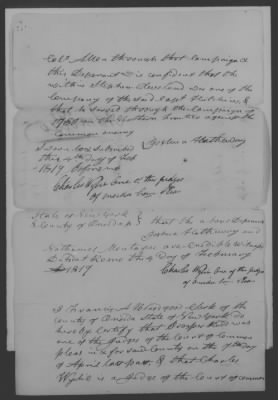 Col. Allen through that Campaign &
this Deponent is confident that the
within Stephen Cleveland was one of the
Company of the said Capt
that he served through the Campaign of
1780 on the Northern frontier against the
Common enemy
Sworn & Subscribed
this 4th day of Feb
1819 before me
Joshua Hathaway
Charles Wylie One of the Judges
of Oneida Com
State of New York
County of Oneida
that the above Deponent
Joshua Hathaway and
Nathaniel Montague are Credible Witnesses
Dated Rome the 4 day of February
1819
Charles Wylie One of the Judges
of Oneida Com
I Francis A Bloodgood Clerk of the
County of Oneida State of New York do
hereby Certify that was
one of the Judges of the Court of Common
pleas in & for said County on the day
of April last past, & that Charles
Wylie is a Judge of the Court of Common